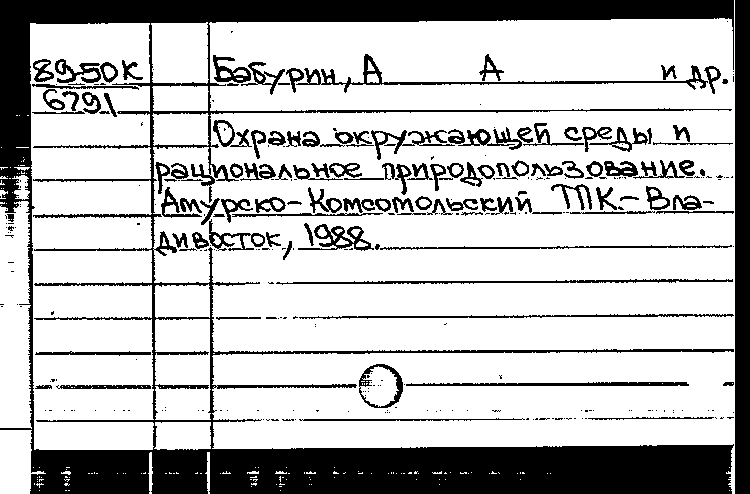 89-50К Бабурин, А А и др.
6791
Охрана окружающей среды и
рациональное природопользование.
Амурско-Комсомольский ТПК.- Вла-
дивосток, 1988.